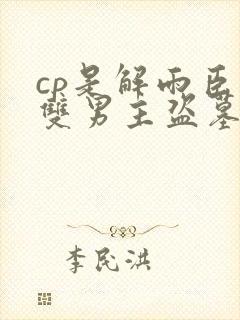 cp是解雨臣
雙男主盜墓
李民洪